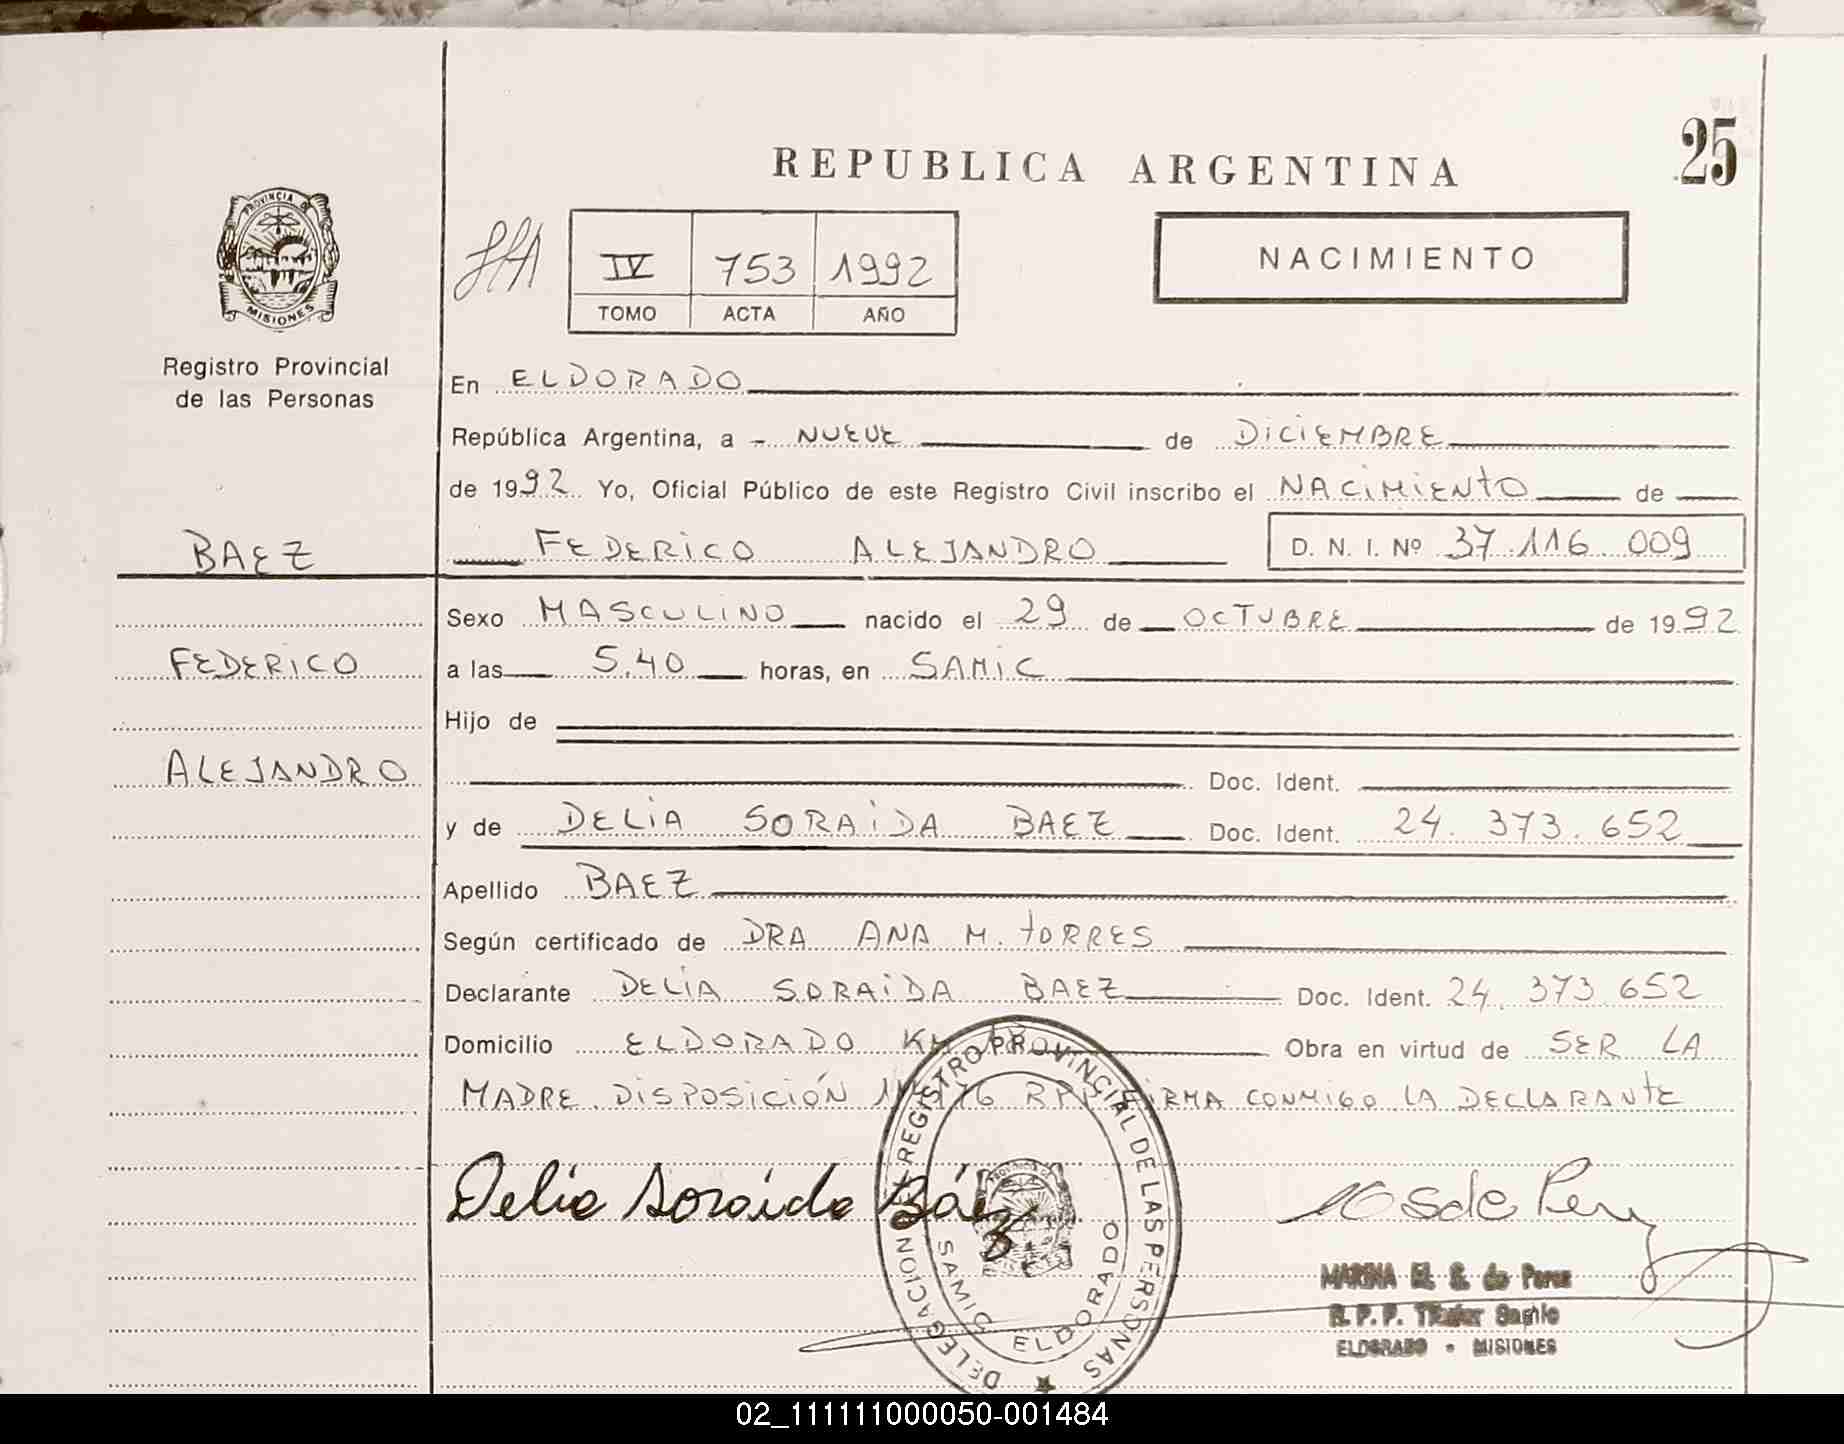 25
REPUBLICA ARGENTINA
PROVINCIA DE
MISIONES
Registro Provincial
de las Personas
IV 753 1992
TOMO ACTA AÑO
NACIMIENTO
En ELDORADO
República Argentina, a - NUEVE de DICIEMBRE
de 1992 Yo, Oficial Público de este Registro Civil inscribo el NACIMIENTO de
BAEZ
FEDERICO ALEJANDRO D. N. I. Nº 37.116.009
Sexo MASCULINO nacido el 29 de OCTUBRE de 1992
FEDERICO
a las 5.40 horas, en SAMIC
Hijo de
ALEJANDRO
Doc. Ident.
y de DELIA SORAIDA BAEZ Doc. Ident. 24.373.652
Apellido BAEZ
Según certificado de DRA ANA M. TORRES
Declarante DELIA SORAIDA BAEZ Doc. Ident. 24.373.652
Domicilio ELDORADO KM Obra en virtud de SER LA
MADRE. DISPOSICIÓN RPP FIRMA CONMIGO LA DECLARANTE
Delia Soraida Báez
DELEGACION REGISTRO PROVINCIAL DE LAS PERSONAS
SAMIC ELDORADO
MARINA de Perez
R.P.P. Titular Samic
ELDORADO - MISIONES
02_111111000050-001484